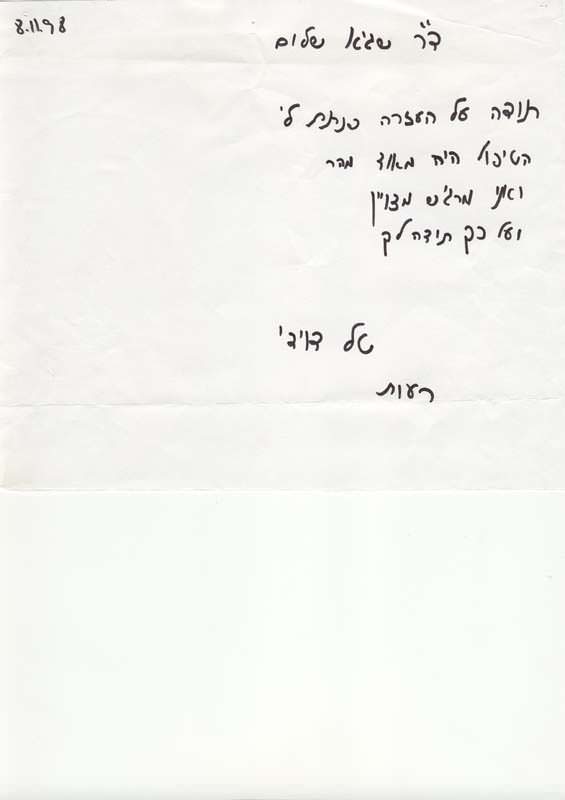 8.11.98
ד"ר שגיא שלום
תודה על העזרה כנתת לי
הטיפול היה מאוד מהר
ואני מרגיש מצויין
ועל כך תידה לך
טל דוידי
רעות